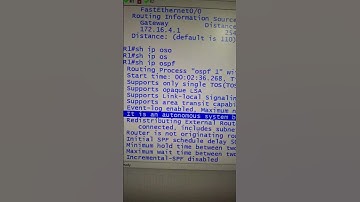 FastEthernet0/0
Routing Information Source
Gateway Distance
172.16.4.1
Distance: (default is 110)
R1#sh ip oso
R1#sh ip os
R1#sh ip ospf
Routing Process "ospf 1" wi
Start time: 00:02:36.268, T
Supports only single TOS(TOS
Supports opaque LSA
Supports Link-local Signalin
Supports area transit capabi
Event-log enabled, Maximum n
It is an autonomous system b
Redistributing External Rout
connected, includes subne
Router is not originating ro
Initial SPF schedule delay 5
Minimum hold time between tw
Maximum wait time between tw
Incremental-SPF disabled